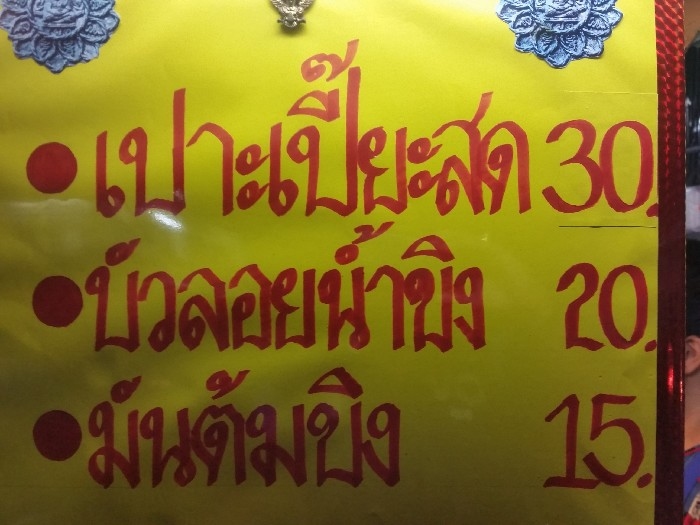 • เปาะเปี๊ยะสด 30.
• บัวลอยน้ำขิง 20.
• มันต้มขิง 15.